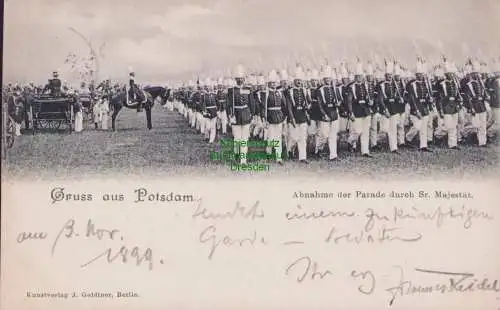 Dresden
Gruss aus Potsdam
Abnahme der Parade durch Sr. Majestät.
am 3. Nov.
1899.
sendet einem zukünftigen
Garde - Soldaten
Ihr
Kunstverlag J. Goldiner, Berlin.